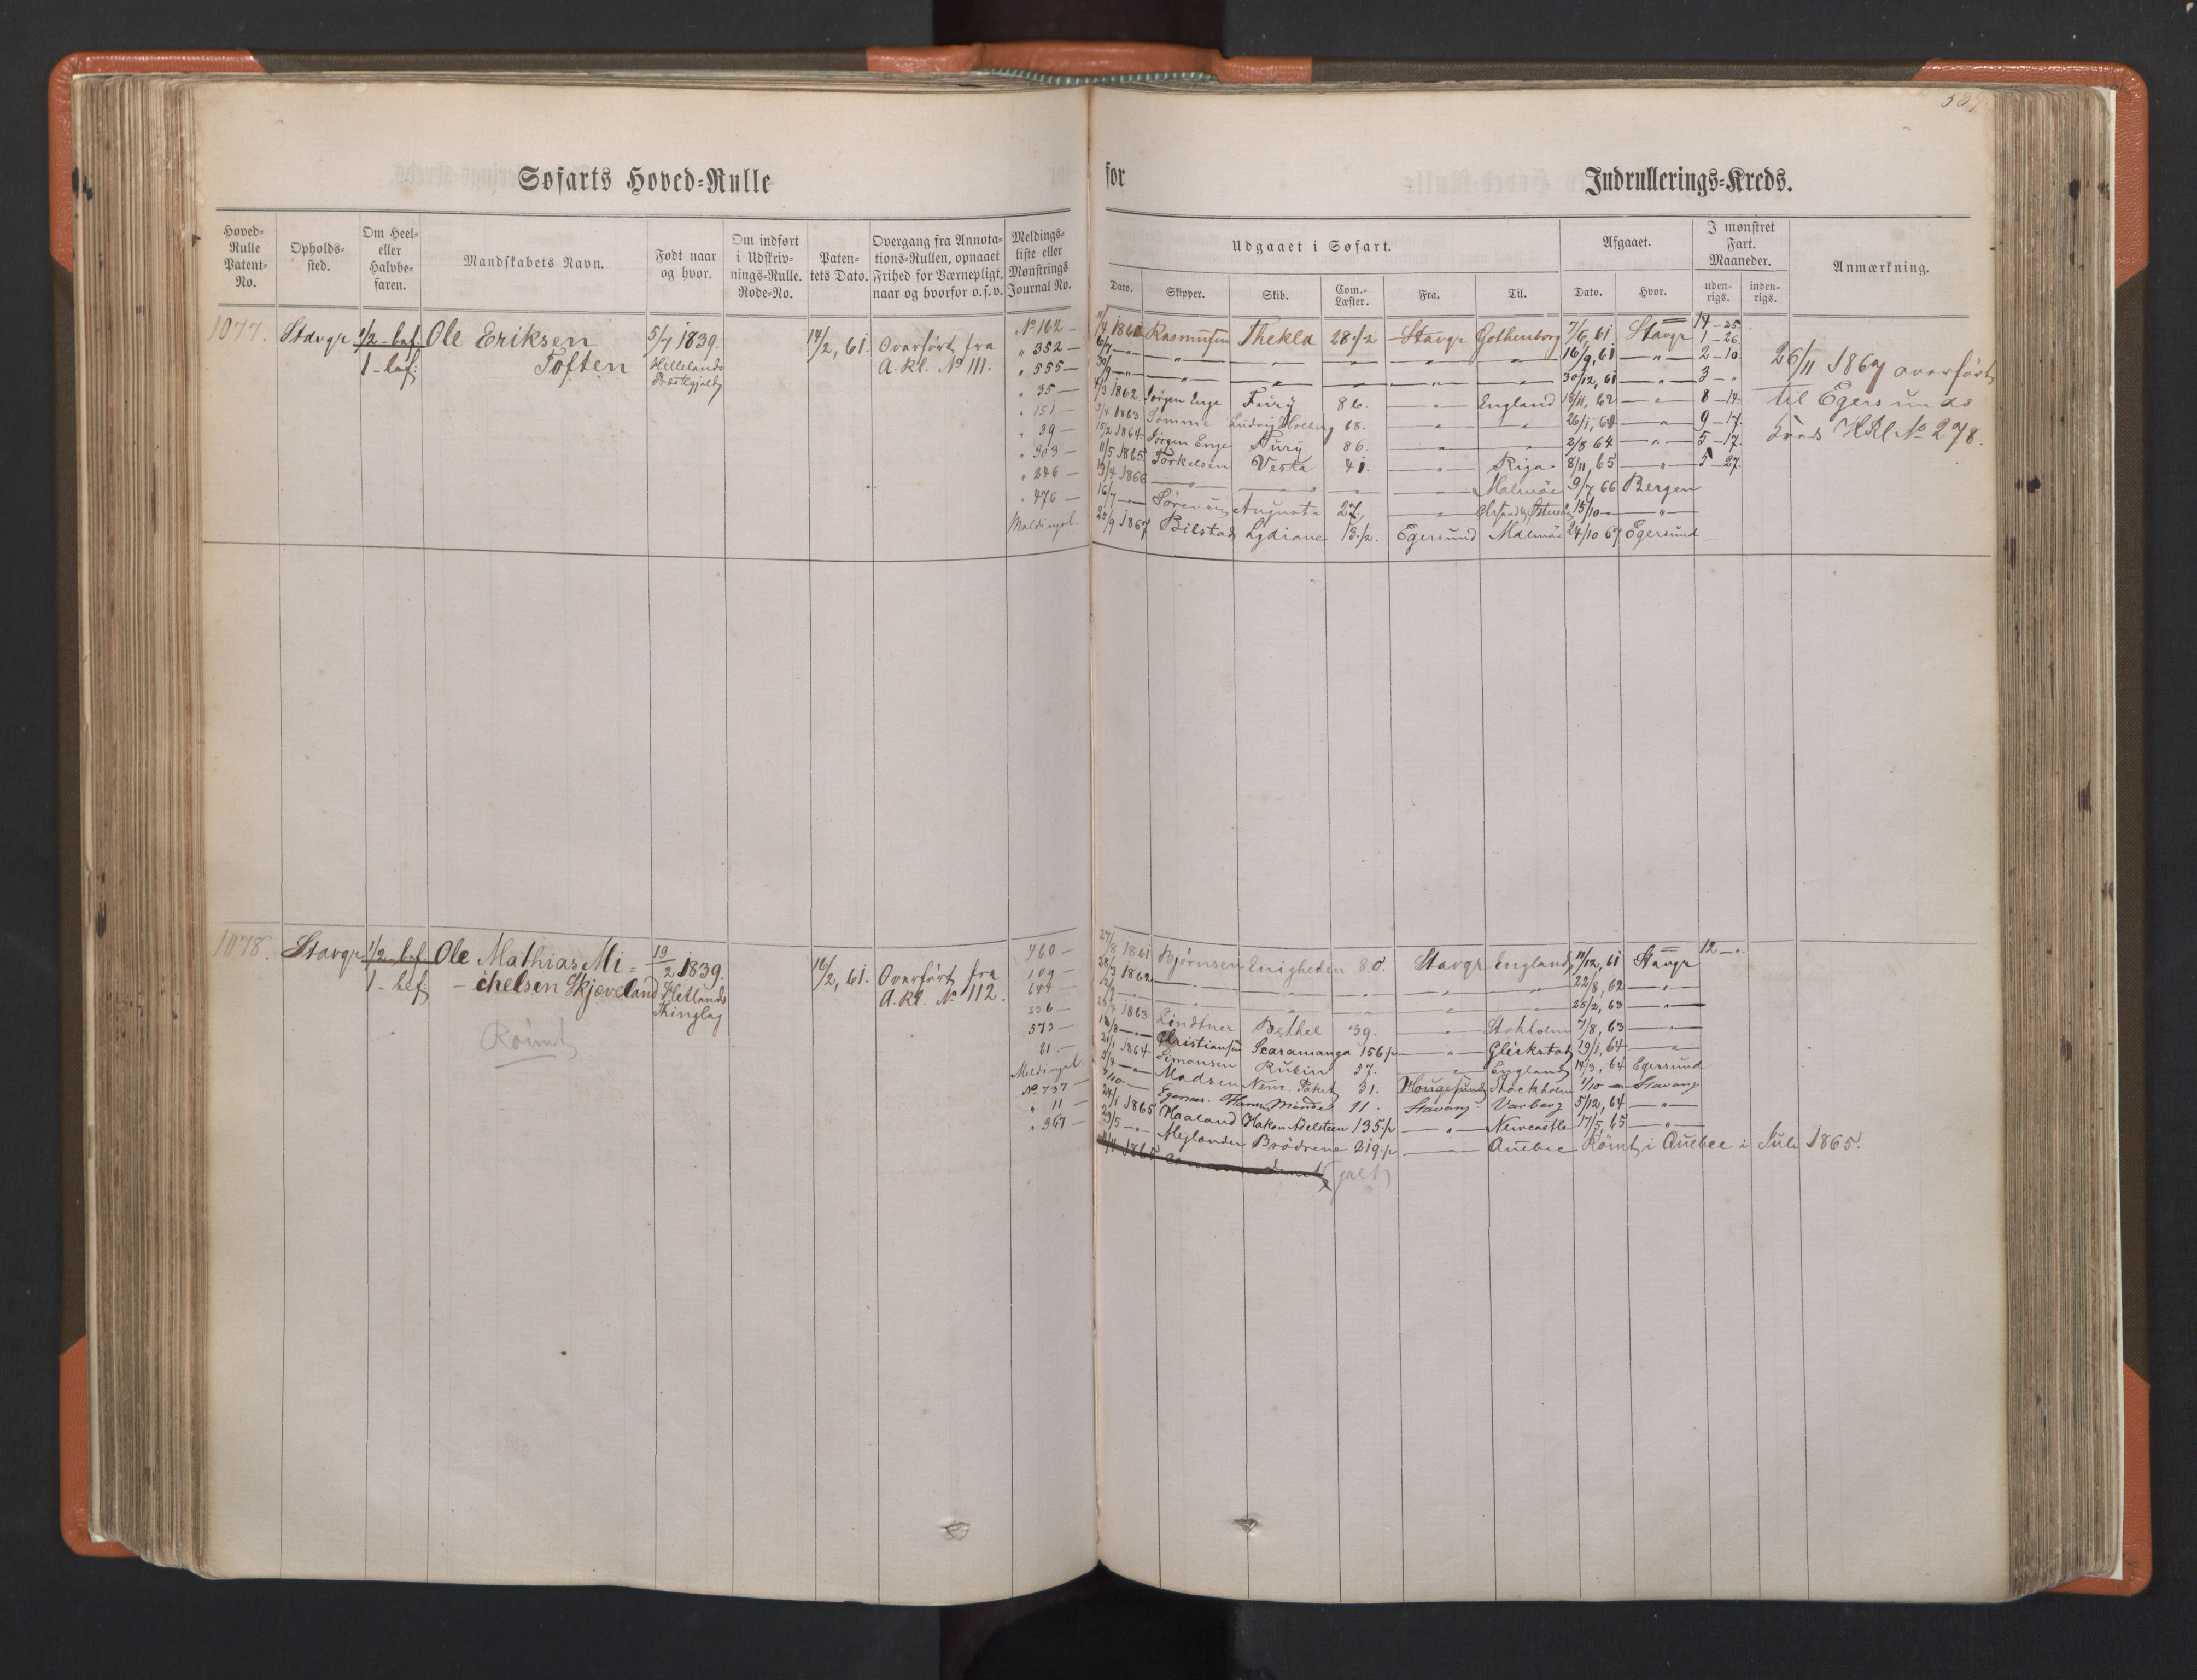 Søfarts Hoved=Rulle
for
Indrullerings=Kreds.
Hoved=Rulle Patent=No.
Opholds=sted.
Om Heel= eller Halvbe=faren.
Mandskabets Navn.
Født naar og hvor.
Om indført i Udskriv=nings=Rulle. Rode=No.
Paten=tets Dato.
Overgang fra Annota=tions=Rullen, opnaaet Frihed for Værnepligt, naar og hvorfor o.s.v.
Meldings=liste eller Mønstrings Journal No.
Udgaaet i Søfart.
Dato. Skipper. Skib. Com.=Læster. Fra. Til.
Afgaaet.
Dato. Hvor.
I mønstret Fart. Maaneder.
uden=rigs. inden=rigs.
Anmærkning.
1077. Stavgr 1/2 - bef Ole Eriksen 5/7 1839. 14/2, 61. Overført fra
1 - bef: Toften Hillelands Præstegjeld A. Rl. No 111.
No 162 — 11/4 1860 Rasmussen Thekla 28 1/2 Stavgr Gothenborg 7/6, 61. Stavgr 14 - 25.
" 352 — 6/7 — " — 16/9, 61 — " — 1 - 26.
" 555 — 30/9 — " — 30/12, 61 — " — 2 - 10
" 35 — 4/3 1862 Jørgen Enge Fury 86. — " — England 18/11, 62 — " — 3 - "
" 151 — 9/4 1863 Sømme Ludvig Holberg 68. — " — 26/1, 64 — " — 8 - 14.
" 39 — 15/2 1864 Jørgen Enge Fury 86. — " — 2/8 64 — " — 9 - 17.
" 303 — 11/5 1865 Torkelsen Vesta 41. — " — Riga 8/11, 65 — " — 5 - 17.
" 246 — 13/4 1866 — " — Malmøe 9/7 66 Bergen 5 - 27.
" 476 — 16/7 — Augusta 27. — 15/10 — " —
Meldingsl. 25/9 1867 Bilstad Lydiane 13 1/2. Egersund Malmøe 24/10 67 Egersund
26/11 1867 overført
til Egersunds
Kreds HRl No 278.
1078. Stavgr 1/2 bef Ole Mathias Mi= 19/2 1839. 16/2, 61. Overført fra
1 - bef: - chelsen Skjæveland Hetlands Thinglag A. Rl. No 112.
Rømt
460 — 27/8 1861 Bjørnsen Enigheden 80. Stavgr England 11/12, 61 Stavgr 12 - "
109 — 28/3 1862 — " — 22/8, 62 — " —
— " — 25/2, 63 — " —
236 — 1863 Lindtner Bethel 39. — " — Stokholm 7/8, 63 — " —
573 — Christiansen Scaramanga 156 1/2 — " — Glückstad 19/1, 64 — " —
21. — 21/1 1864 Simonsen Rubin 37. — " — England 14/3, 64 Egersund
Meldingsl. 5/4 — Madsen New. Paket 31. Hougesund Stockholm 1/10 — Stavang
No 737 — /10 — Egenæs. Hanna Minda 11. Stavang. Varberg 5/12, 64 — " —
" 11 — 24/1 1865 Haaland Hakon Adelsteen 135 1/2 — " — Newcastle 17/5, 65 — " —
" 367 — 29/5 — " — Mejlænder Brødrene 219 1/2 — " — Quebec Rømt i Quebec i Juli 1865.
(galt)